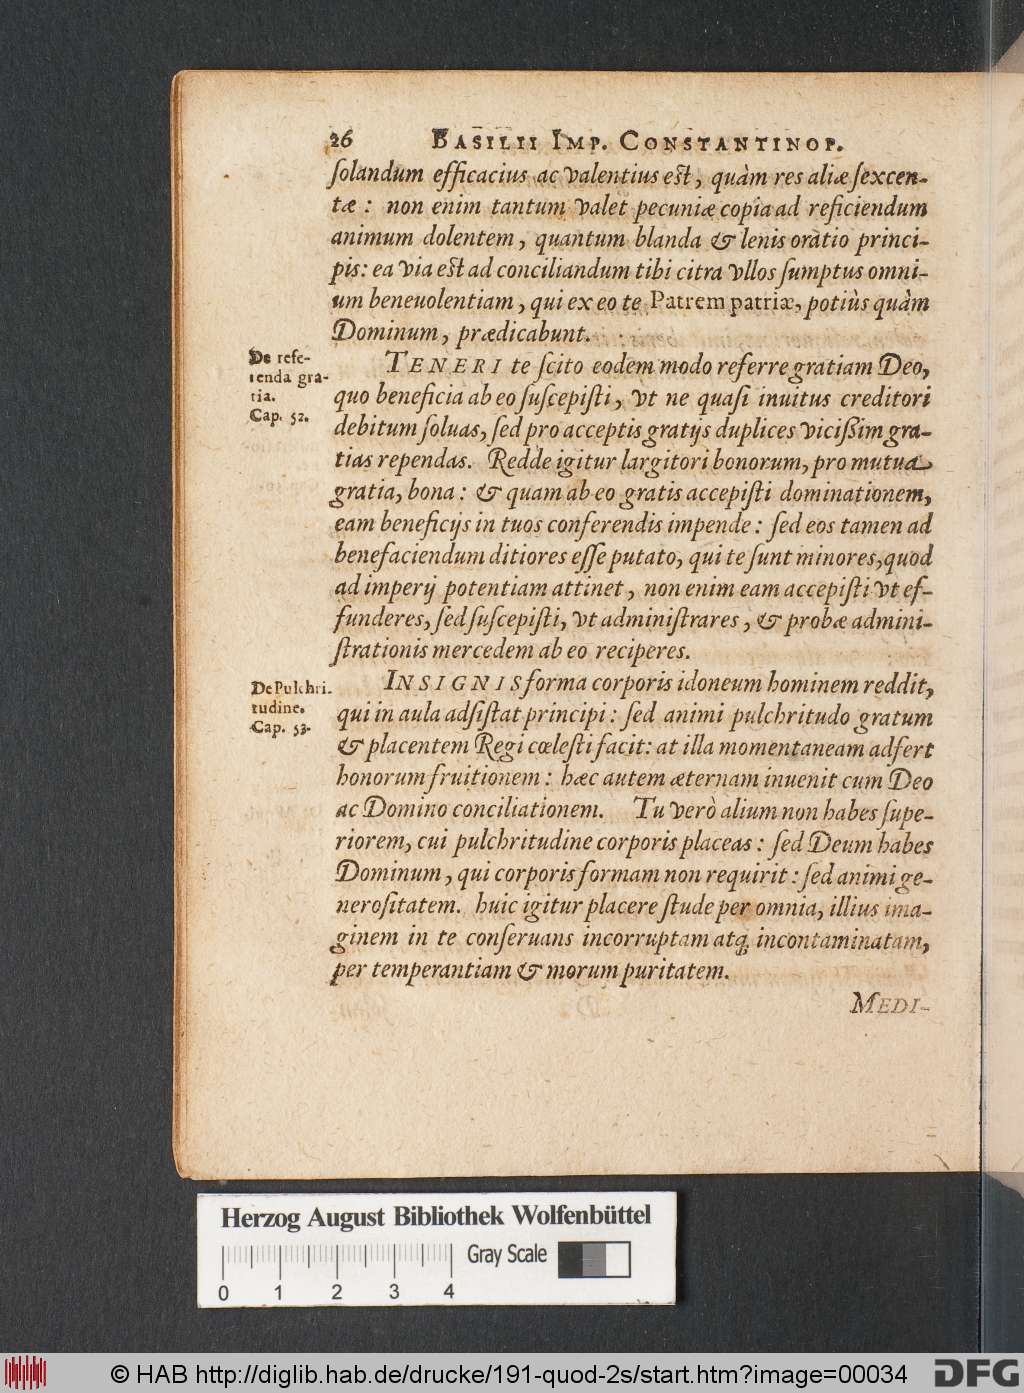 26 BASILII IMP. CONSTANTINOP.
ſolandum efficacius ac valentius est, quàm res aliæ ſexcen-
tæ : non enim tantum valet pecuniæ copia ad reficiendum
animum dolentem, quantum blanda & lenis oratio princi-
pis: ea via est ad conciliandum tibi citra vllos ſumptus omni-
um beneuolentiam, qui ex eo te Patrem patriæ, potiùs quàm
Dominum, prædicabunt.
De refe-
renda gra-
tia.
Cap. 52.
TENERI te ſcito eodem modo referre gratiam Deo,
quo beneficia ab eo ſuſcepiſti, vt ne quaſi inuitus creditori
debitum ſoluas, ſed pro acceptis gratijs duplices viciſſim gra-
tias rependas. Redde igitur largitori bonorum, pro mutua
gratia, bona : & quam ab eo gratis accepiſti dominationem,
eam beneficijs in tuos conferendis impende : ſed eos tamen ad
benefaciendum ditiores eſſe putato, qui te ſunt minores, quod
ad imperij potentiam attinet, non enim eam accepiſti vt ef-
funderes, ſed ſuſcepiſti, vt adminiſtrares, & probæ admini-
ſtrationis mercedem ab eo reciperes.
De Pulchri-
tudine.
Cap. 53.
INSIGNIS forma corporis idoneum hominem reddit,
qui in aula adſiſtat principi : ſed animi pulchritudo gratum
& placentem Regi cœleſti facit: at illa momentaneam adfert
honorum fruitionem : hæc autem æternam inuenit cum Deo
ac Domino conciliationem. Tu verò alium non habes ſupe-
riorem, cui pulchritudine corporis placeas : ſed Deum habes
Dominum, qui corporis formam non requirit : ſed animi ge-
neroſitatem. huic igitur placere ſtude per omnia, illius ima-
ginem in te conſeruans incorruptam atq; incontaminatam,
per temperantiam & morum puritatem.
MEDI-
Herzog August Bibliothek Wolfenbüttel
Gray Scale
0 1 2 3 4
© HAB http://diglib.hab.de/drucke/191-quod-2s/start.htm?image=00034
DFG